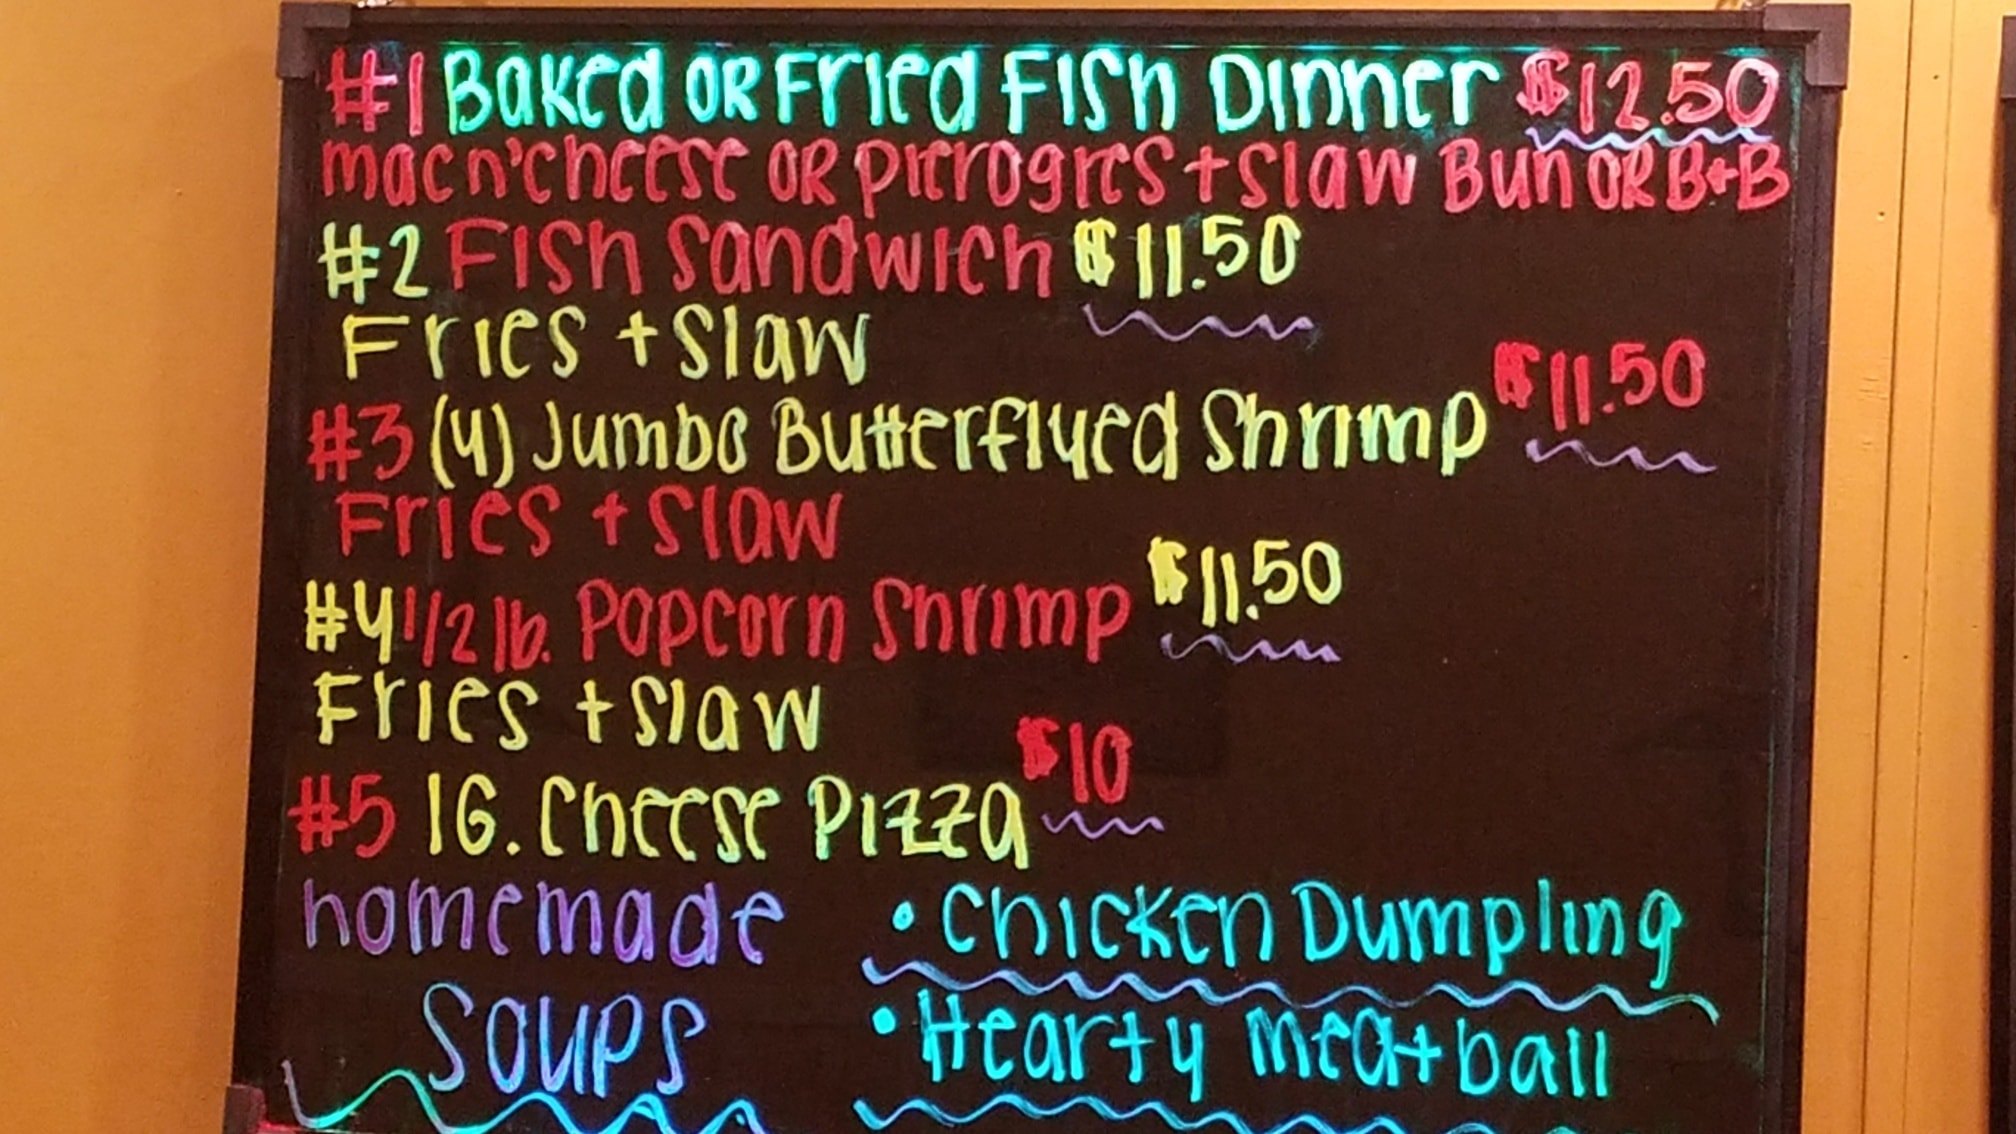 #1 Baked OR Fried Fish Dinner $12.50
mac n'cheese OR pierogies + slaw Bun OR B+B
#2 Fish Sandwich $11.50
Fries + slaw
#3 (4) Jumbo Butterflyed Shrimp $11.50
Fries + slaw
#4 1/2 lb. Popcorn Shrimp $11.50
Fries + slaw
#5 16. Cheese Pizza $10
homemade
Soups
• Chicken Dumpling
• Hearty meatball